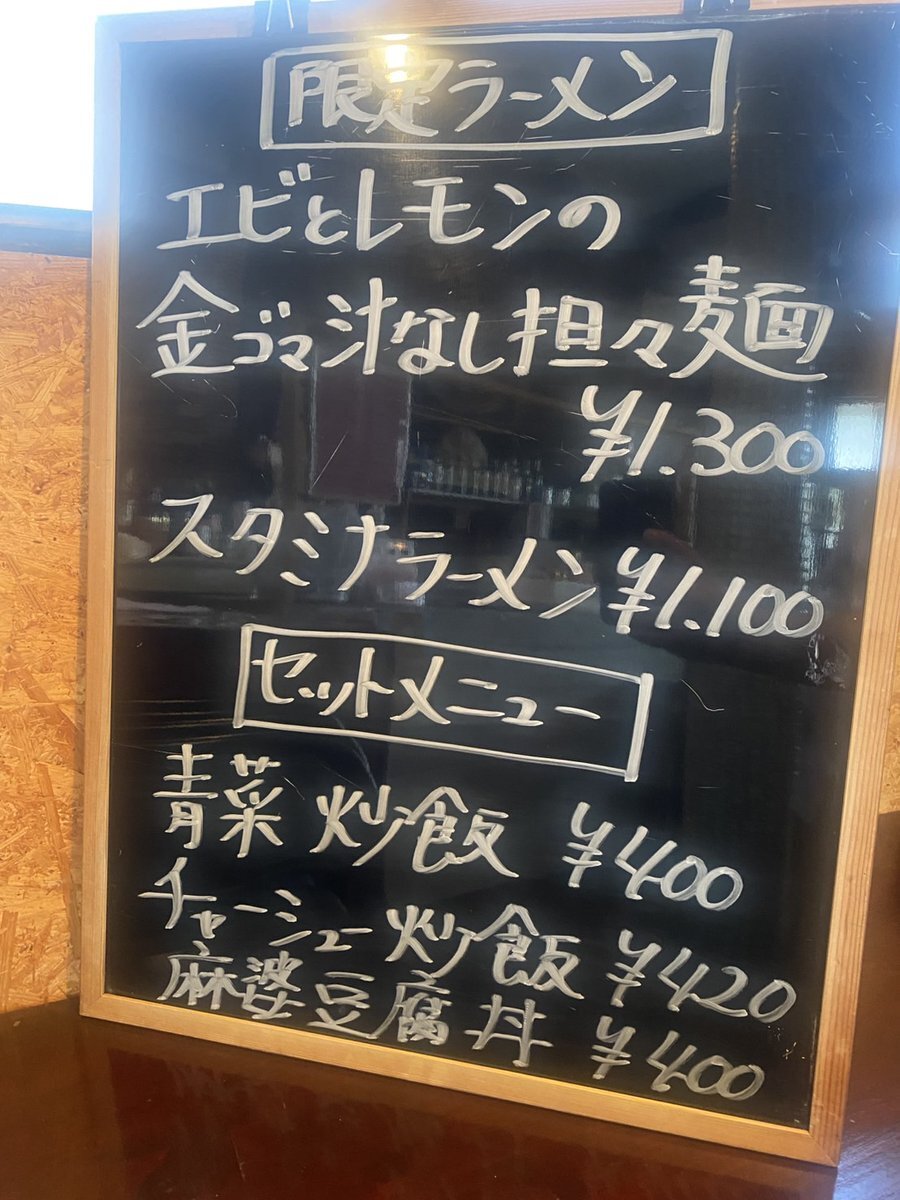 限定ラーメン
エビとレモンの
金ゴマ汁なし担々麺
¥1.300
スタミナラーメン ¥1.100
セットメニュー
青菜 炒飯 ¥400
チャーシュー 炒飯 ¥420
麻婆豆腐 丼 ¥400